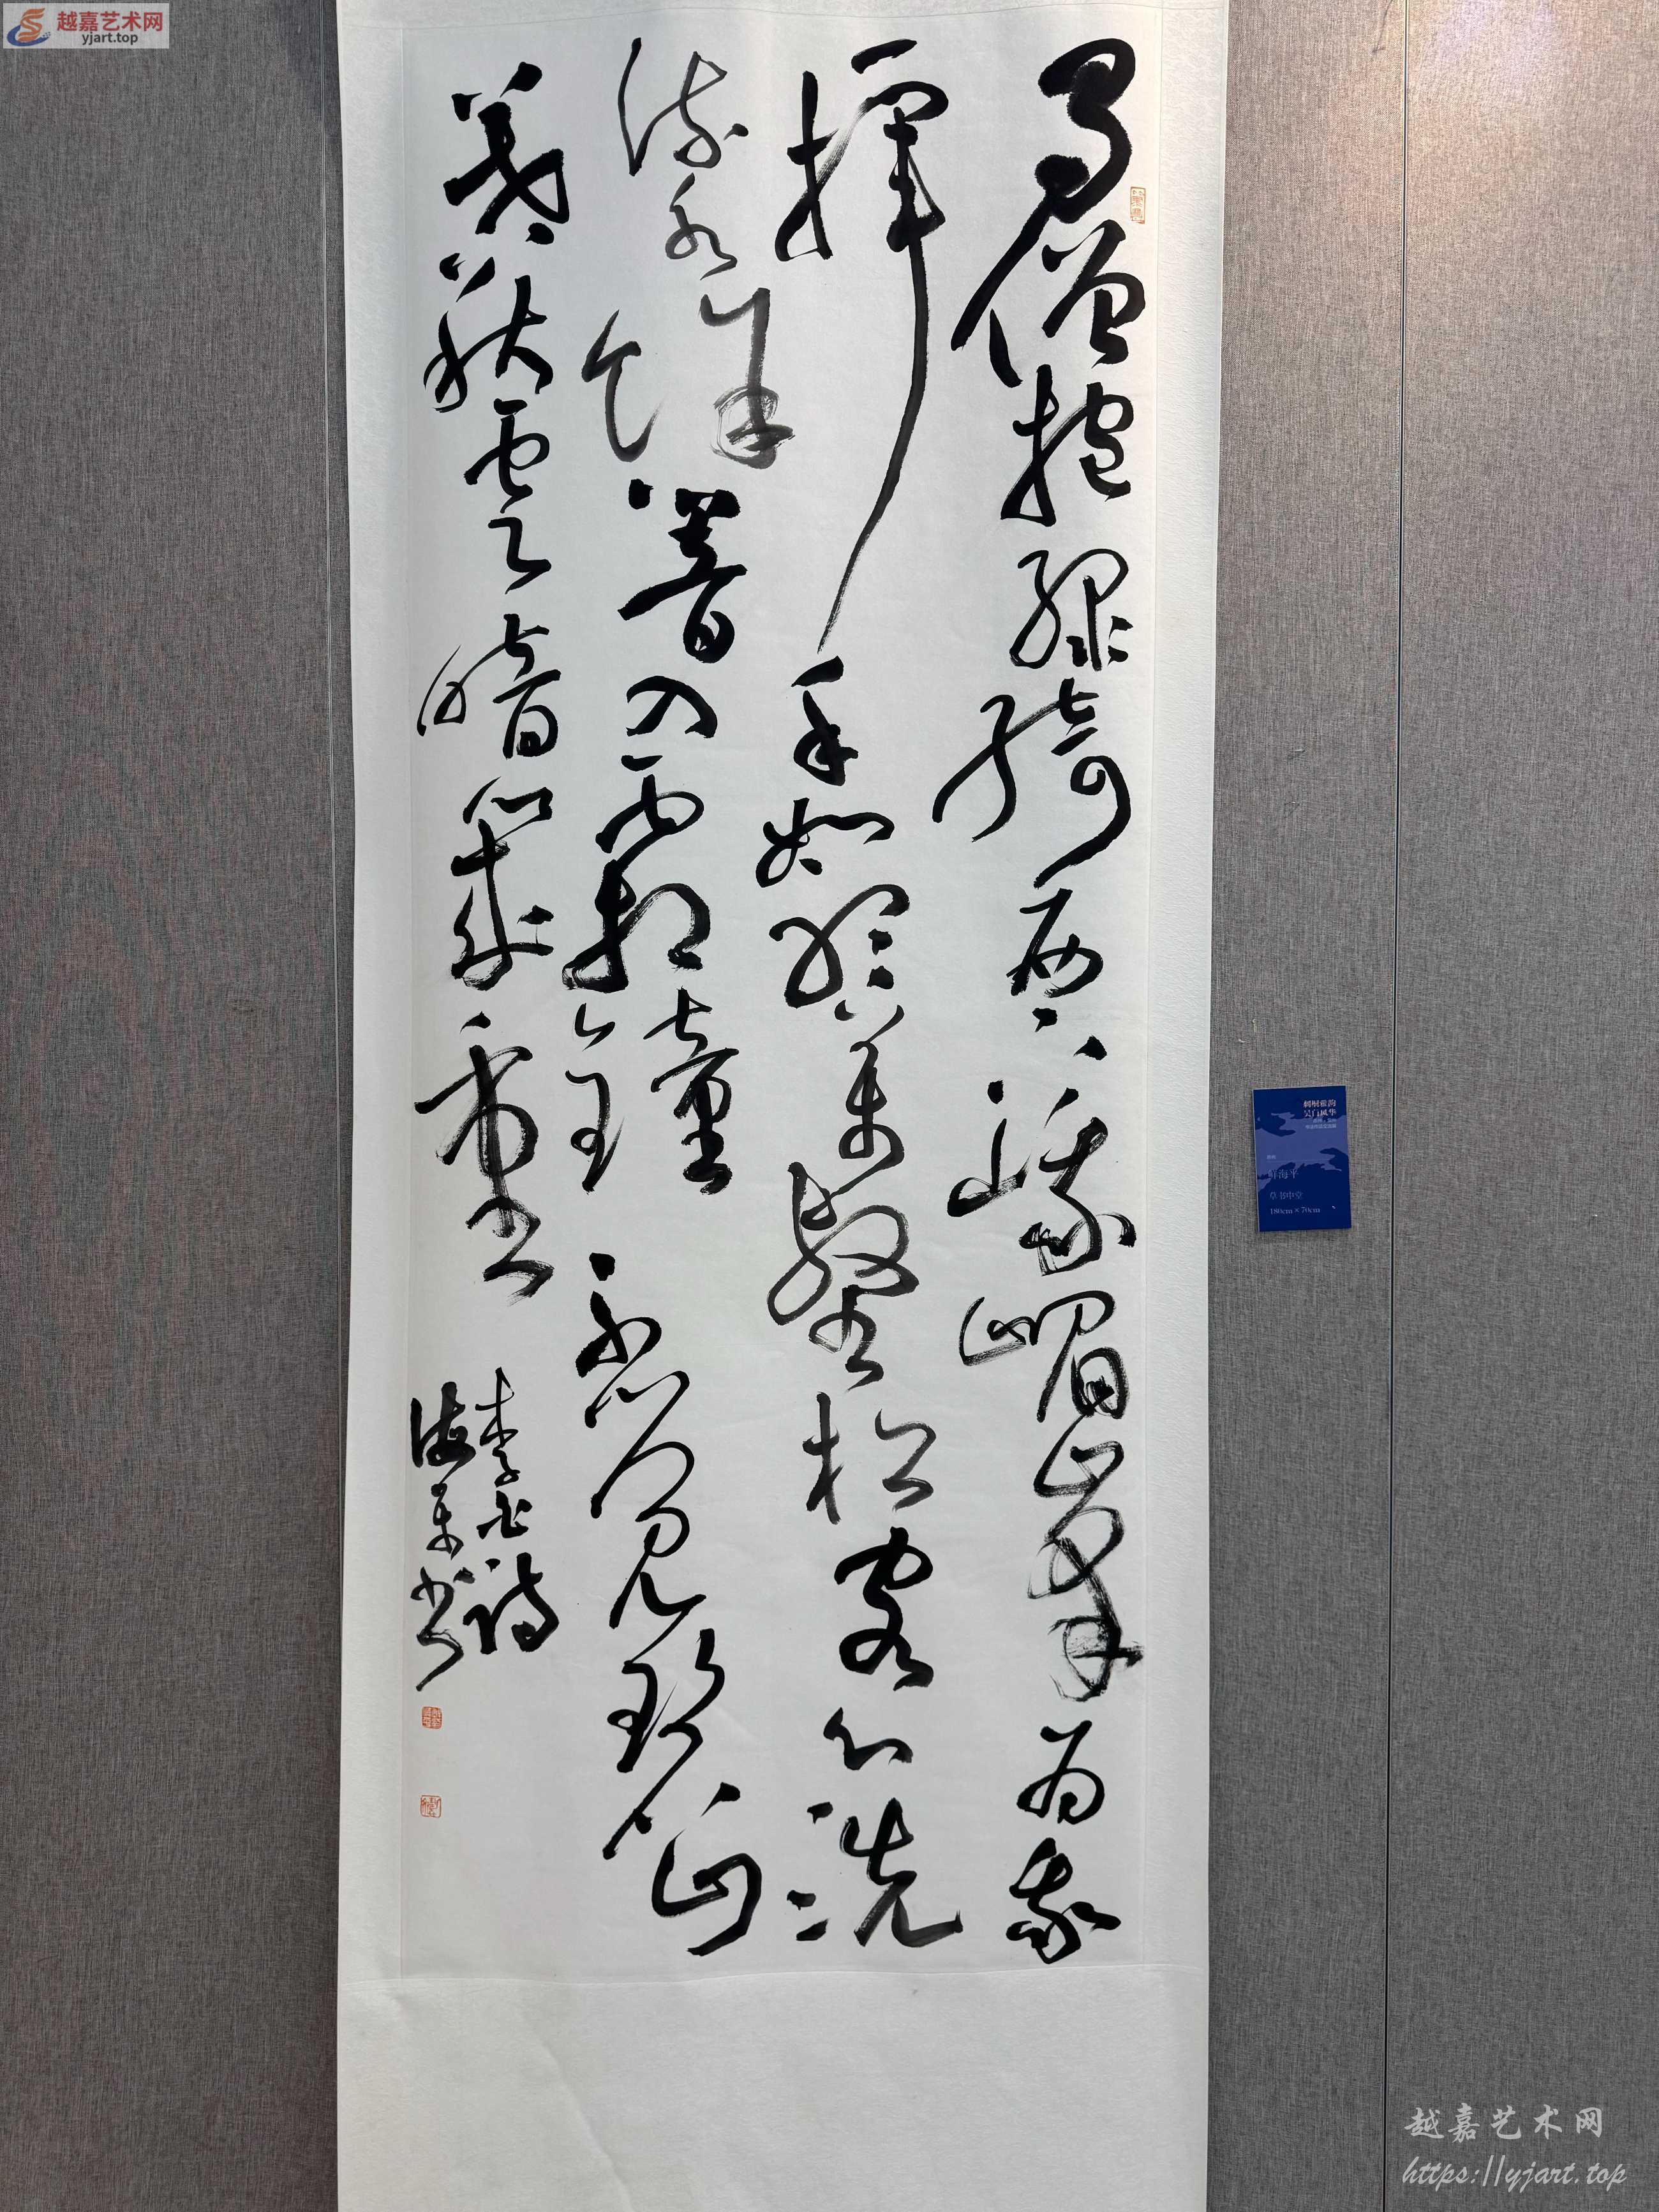 越嘉艺术网
yjart.top
蜀僧抱綠綺西下峨嵋峰為我
一揮手如聽萬壑松客心洗
流水餘響入霜鐘不覺碧山
暮秋雲暗幾重
李白詩
海平書
刺桐雅韵
吴门风华
海平
草书中堂
180cm×70cm
越嘉艺术网
https://yjart.top